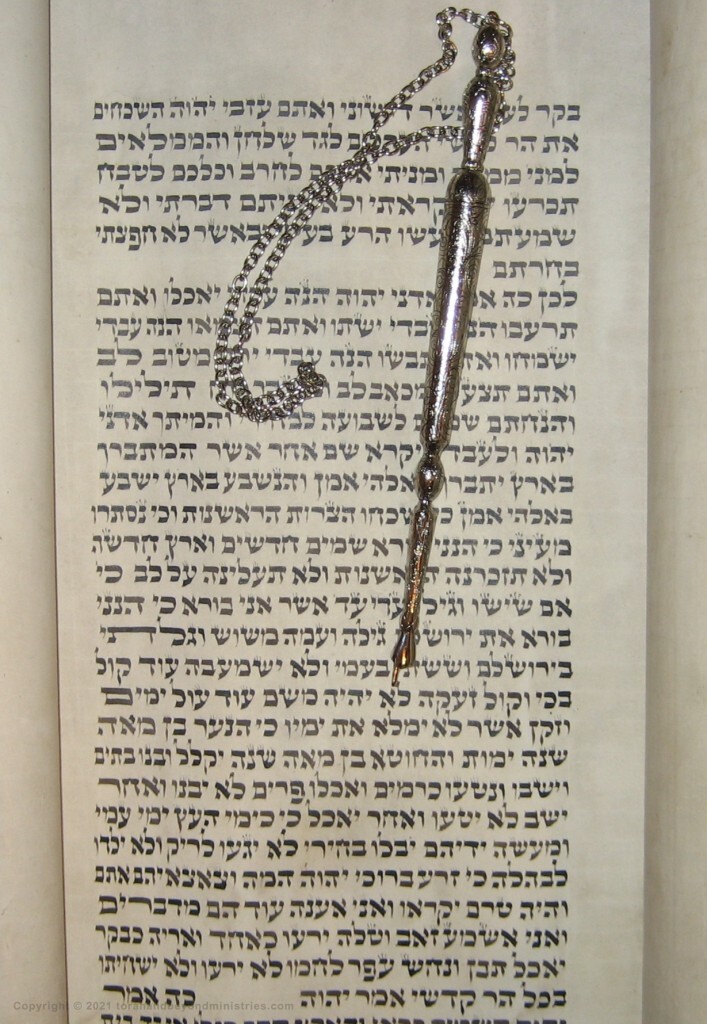 בקר אשר ואתם עזבי יהוה השכחים
את הר לגד שלחן והממלאים
למני ומניתי לחרב וכלכם לטבח
תכרעו קראתי ולא דברתי ולא
הרע ובאשר לא חפצתי
בחרתם
לכן כה אדני יהוה הנה יאכלו ואתם
תרעבו ישתו ואתם הנה עבדי
ישמחו הנה עבדי מטוב לב
ואתם מכאב לב תילילו
והנחתם לשבועה והמיתך אדני
יהוה יקרא שם אחר אשר המתברך
בארץ יתברך אלהי אמן והנשבע בארץ ישבע
באלהי אמן כי נשכחו הצרות הראשנות וכי נסתרו
מעיני כי הנני בורא שמים חדשים וארץ חדשה
ולא תזכרנה הראשנות ולא תעלינה על לב כי
אם שישו וגילו עדי עד אשר אני בורא כי הנני
בורא את גילה ועמה משוש וגלתי
בירושלם וששתי בעמי ולא ישמע בה עוד קול
בכי וקול זעקה לא יהיה משם עוד עול ימים
וזקן אשר לא ימלא את ימיו כי הנער בן מאה
שנה ימות והחוטא בן מאה שנה יקלל ובנו בתים
וישבו ונטעו כרמים ואכלו פרים לא יבנו ואחר
ישב לא יטעו ואחר יאכל כי כימי העץ ימי עמי
ומעשה ידיהם יבלו בחירי לא יגעו לריק ולא ילדו
לבהלה כי זרע ברוכי יהוה המה וצאצאיהם אתם
והיה טרם יקראו ואני אענה עוד הם מדברים
ואני אשמע זאב וטלה ירעו כאחד ואריה כבקר
יאכל תבן ונחש עפר לחמו לא ירעו ולא ישחיתו
בכל הר קדשי אמר יהוה כה אמר
Copyright © 2021 torahandbeyondministries.com